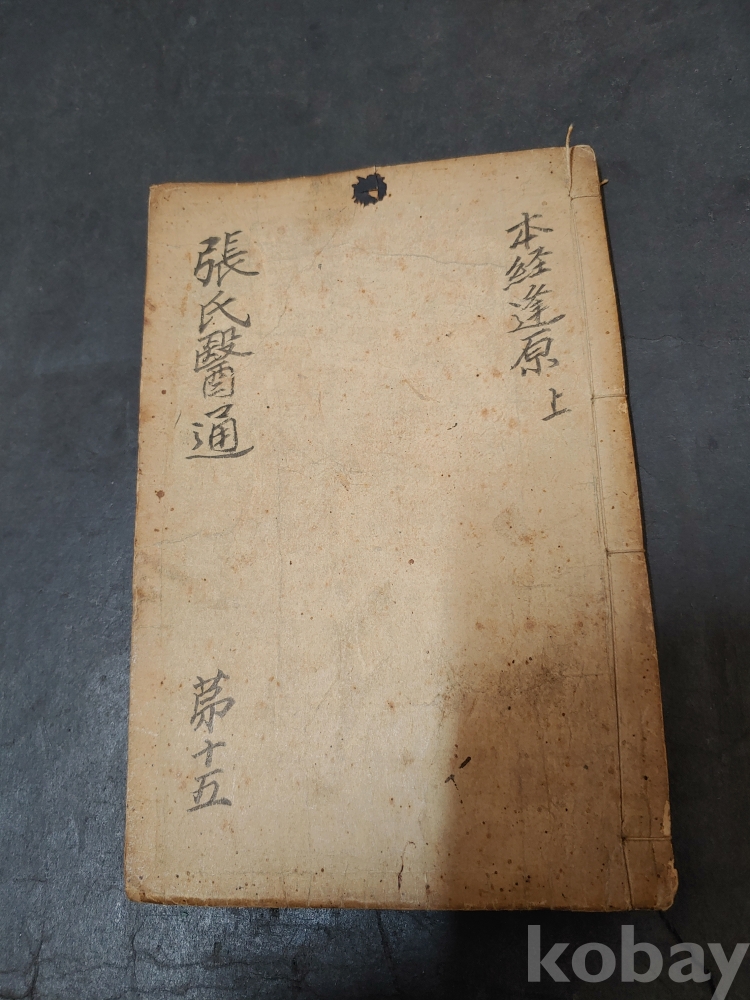 本経逢原 上
張氏醫通
苐十五
kobay